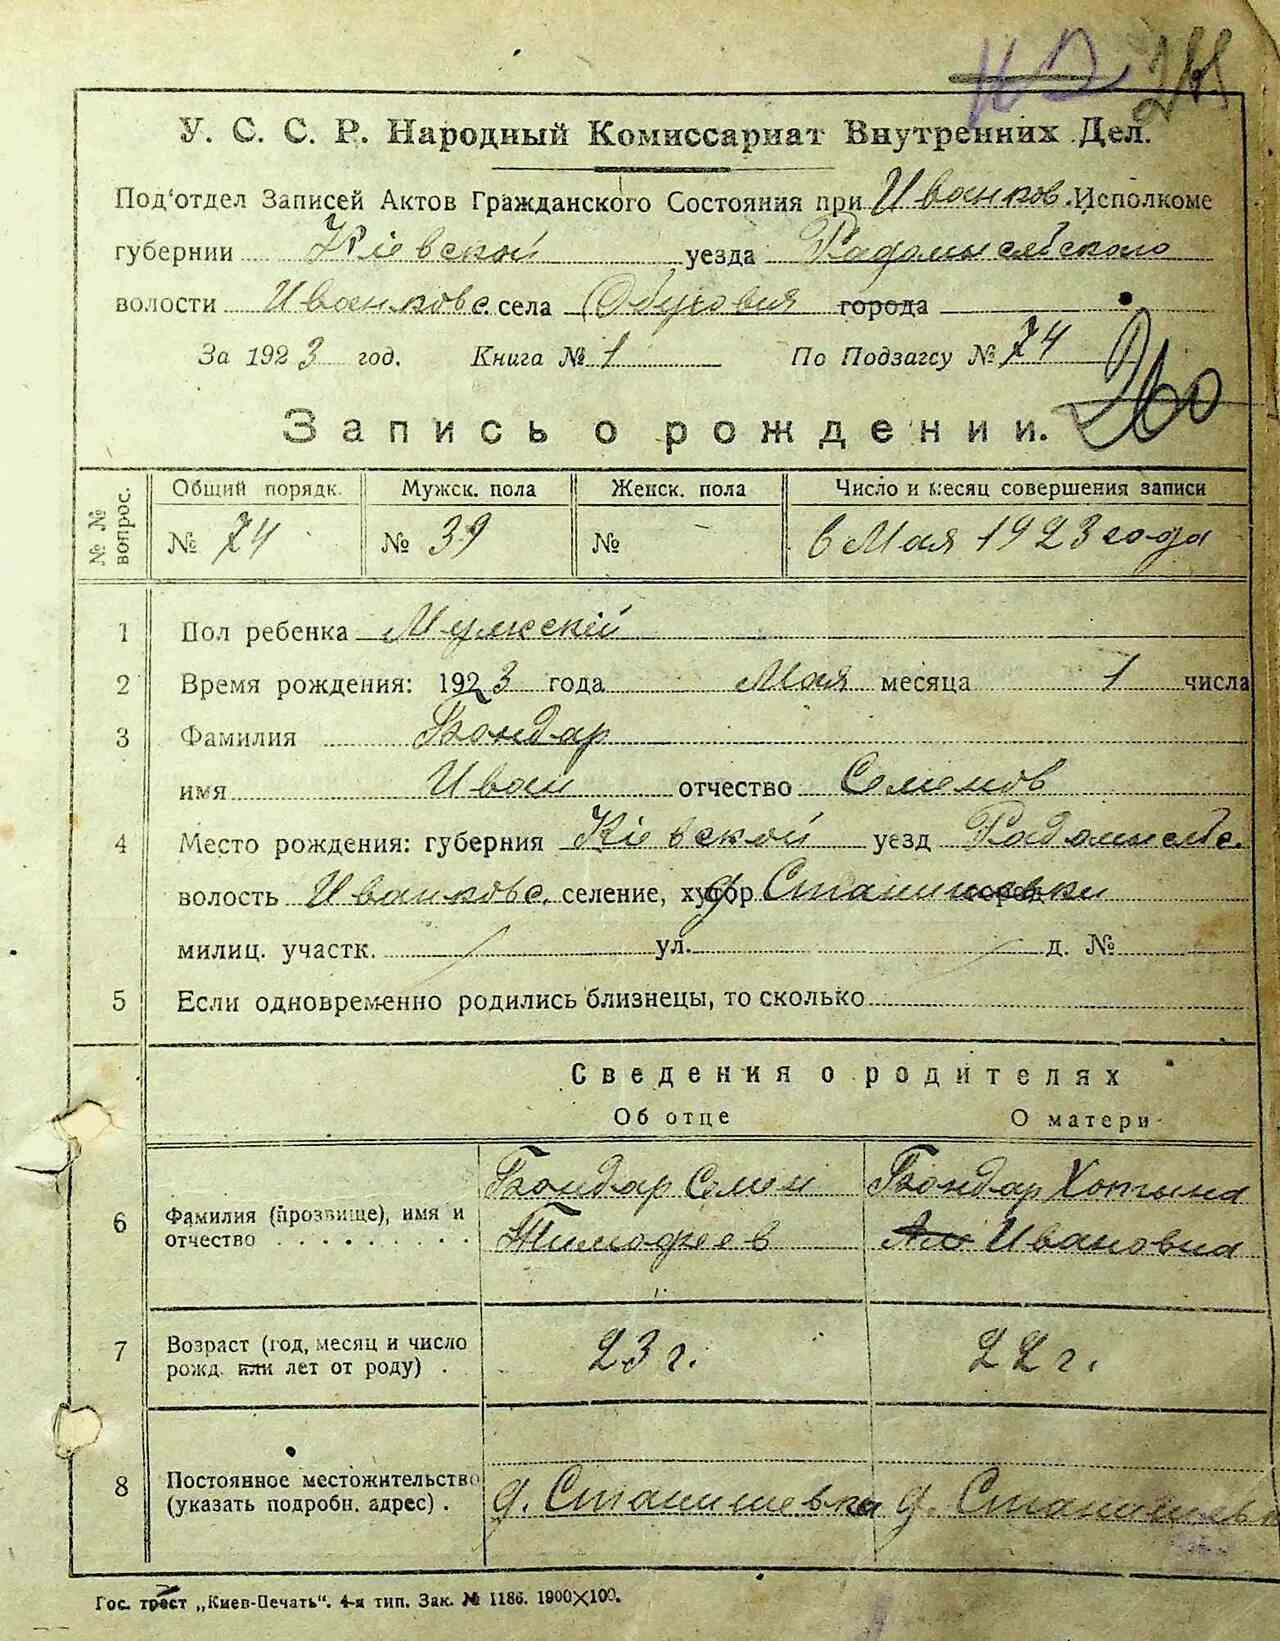 У. С. С. Р. Народный Комиссариат Внутренних Дел.
Под'отдел Записей Актов Гражданского Состояния при Иванков. Исполкоме
губернии Кіевской уезда Радомысльского
волости Иванковс. села Обуховия города
За 1923 год. Книга № 1 По Подзагсу № 74
260
Запись о рождении.
№ № вопрос. Общий порядк. Мужск. пола Женск. пола Число и месяц совершения записи
№ 74 № 39 № - 6 Мая 1923 года
1 Пол ребенка Мужскій
2 Время рождения: 1923 года Мая месяца 1 числа
3 Фамилия Бондар
имя Иван отчество Семенов
4 Место рождения: губерния Кіевской уезд Радомысльс.
волость Иванковс. селение, хутор д. Станишевки
милиц. участк. ул. д. №
5 Если одновременно родились близнецы, то сколько
Сведения о родителях
Об отце О матери
6 Фамилия (прозвище), имя и отчество Бондар Семен Тимофеев Бондар Хотына Ивановна
7 Возраст (год, месяц и число рожд. или лет от роду) 23 г. 22 г.
8 Постоянное местожительство (указать подробн. адрес) д. Станишевка д. Станишевк
Гос. трест „Киев-Печать“. 4-я тип. Зак. № 1186. 1900×100.